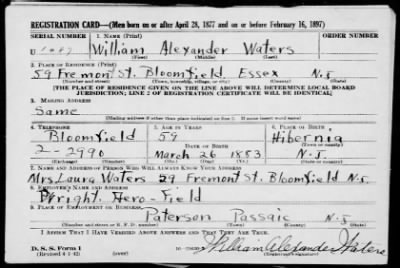 REGISTRATION CARD—(Men born on or after April 28, 1877 and on or before February 16, 1897)
SERIAL NUMBER 1. NAME (Print) ORDER NUMBER
U 1087 William Alexander Waters
(First) (Middle) (Last)
2. PLACE OF RESIDENCE (Print)
59 Fremont St. Bloomfield Essex N.J.
(Number and street) (Town, township, village, or city) (County) (State)
[THE PLACE OF RESIDENCE GIVEN ON THE LINE ABOVE WILL DETERMINE LOCAL BOARD
JURISDICTION; LINE 2 OF REGISTRATION CERTIFICATE WILL BE IDENTICAL]
3. MAILING ADDRESS
Same
(Mailing address if other than place indicated on line 2. If same insert word same)
4. TELEPHONE 5. AGE IN YEARS 6. PLACE OF BIRTH
Bloomfield 59 Hibernia
(Town or county)
2-2990 March 26 1883 N.J.
(Exchange) (Number) (Mo.) (Day) (Yr.) (State or country)
7. NAME AND ADDRESS OF PERSON WHO WILL ALWAYS KNOW YOUR ADDRESS
Mrs Laura Waters 59 Fremont St. Bloomfield N.J.
8. EMPLOYER'S NAME AND ADDRESS
Wright Aero-Field
9. PLACE OF EMPLOYMENT OR BUSINESS
Paterson Passaic N.J.
(Number and street or R. F. D. number) (Town) (County) (State)
I AFFIRM THAT I HAVE VERIFIED ABOVE ANSWERS AND THAT THEY ARE TRUE.
D. S. S. Form 1
(Revised 4-1-42) (over) William Alexander Waters